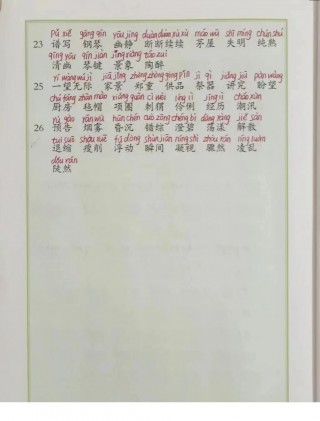 pǔ xiě gāng qín yōu jìng duàn duàn xù xù máo wū shī míng chún shú
23 谱写 钢琴 幽静 断断续续 茅屋 失明 纯熟
qīng yōu qín jiàn jǐng xiàng táo zuì
清幽 琴键 景象 陶醉
yī wàng wú jì jiā jǐng zhèng zhòng gòng pǐn jì qì jiǎng jiū pàn wàng
25 一望无际 家景 郑重 供品 祭器 讲究 盼望
chú fáng zhān mào xiàng quān cì wei líng lì jīng lì cháo xùn
厨房 毡帽 项圈 刺猬 伶俐 经历 潮汛
yù gào yān wù hūn chén cuò zōng chéng bì dàng yàng jiě sàn
26 预告 烟雾 昏沉 错综 澄碧 荡漾 解散
tuì suō shòu xuē fú dòng shùn jiān níng shì zhòu rán líng luàn
退缩 瘦削 浮动 瞬间 凝视 骤然 凌乱
dǒu rán
陡然